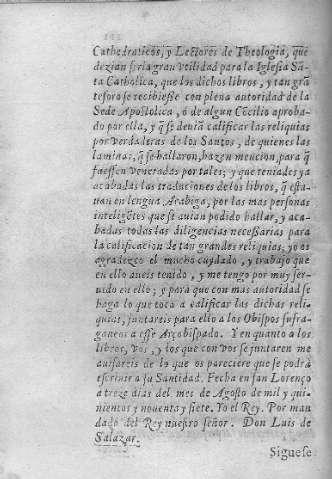 Cathedraticos, y Lectores de Theologia, que
dezian seria gran vtilidad para la Iglesia Sã-
ta Catholica, que los dichos libros, y tan grã
tesoro se recibiesse con plena autoridad de la
Sede Apostolica, ò de algun Cõcilio aproba-
do por ella, y q̃ se deuiã calificar las reliquias
por verdaderas de los Santos, de quienes las
laminas, q̃ se hallaron, hazen mencion, para q̃
fuessen veneradas por tales; y que teniades ya
acabadas las traduciones de los libros, q̃ esta-
uan en lengua Arabiga, por las mas personas
inteligẽtes que se auian podido hallar, y aca-
badas todas las diligencias necessarias para
la calificacion de tan grandes reliquias; yo os
agradezco el mucho cuydado, y trabajo que
en ello aueis tenido, y me tengo por muy ser-
uido en ello; y para que con mas autoridad se
haga lo que toca a calificar las dichas reli-
quias, juntareis para ello a los Obispos sufra-
ganeos a esse Arçobispado. Y en quanto a los
libros, vos, y los que con vos se juntaren me
auisareis de lo que os pareciere que se podrà
escriuir a su Santidad. Fecha en san Lorenço
a treze dias del mes de Agosto de mil y qui-
nientos y nouenta y siete. Yo el Rey. Por man
dado del Rey nuestro señor. Don Luis de
Salazar.
Siguese